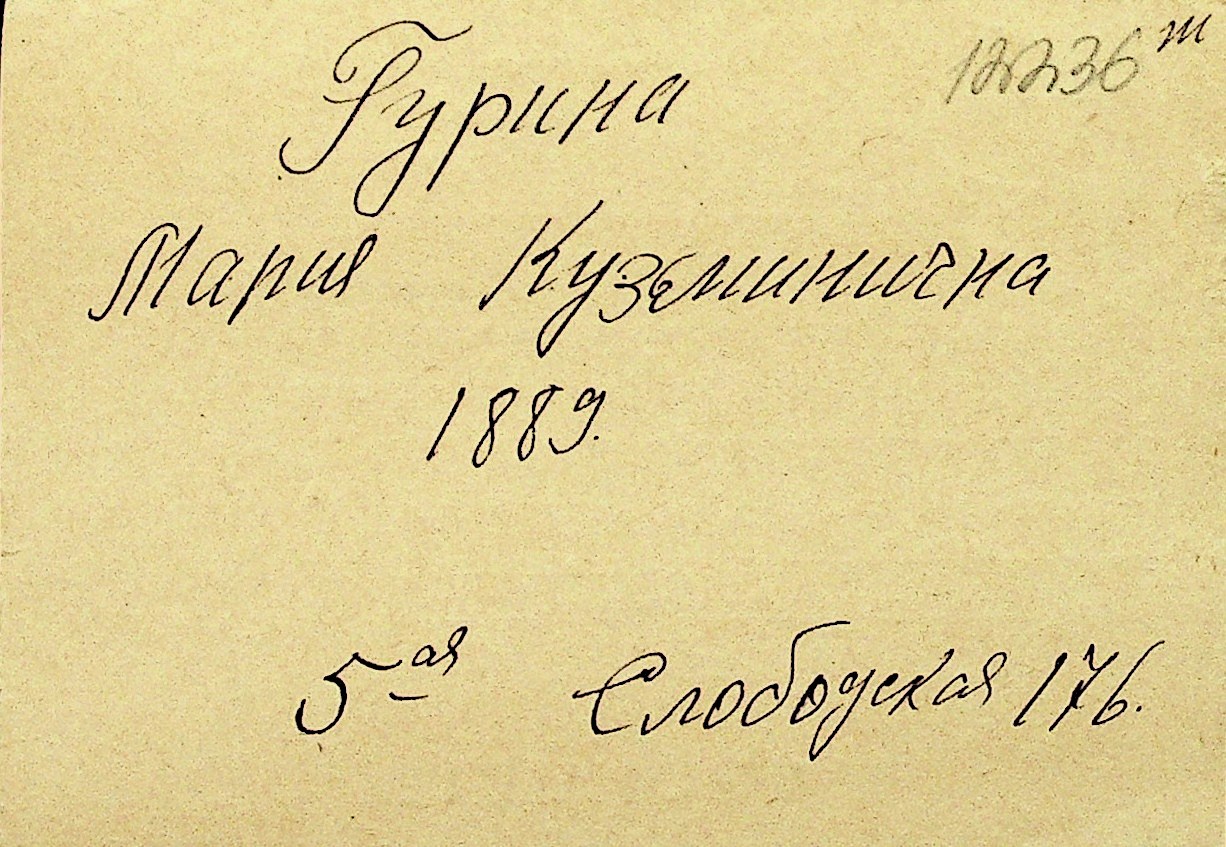 12236 т
Гурина
Мария Кузьминична
1889.
5ая Слободская 176.